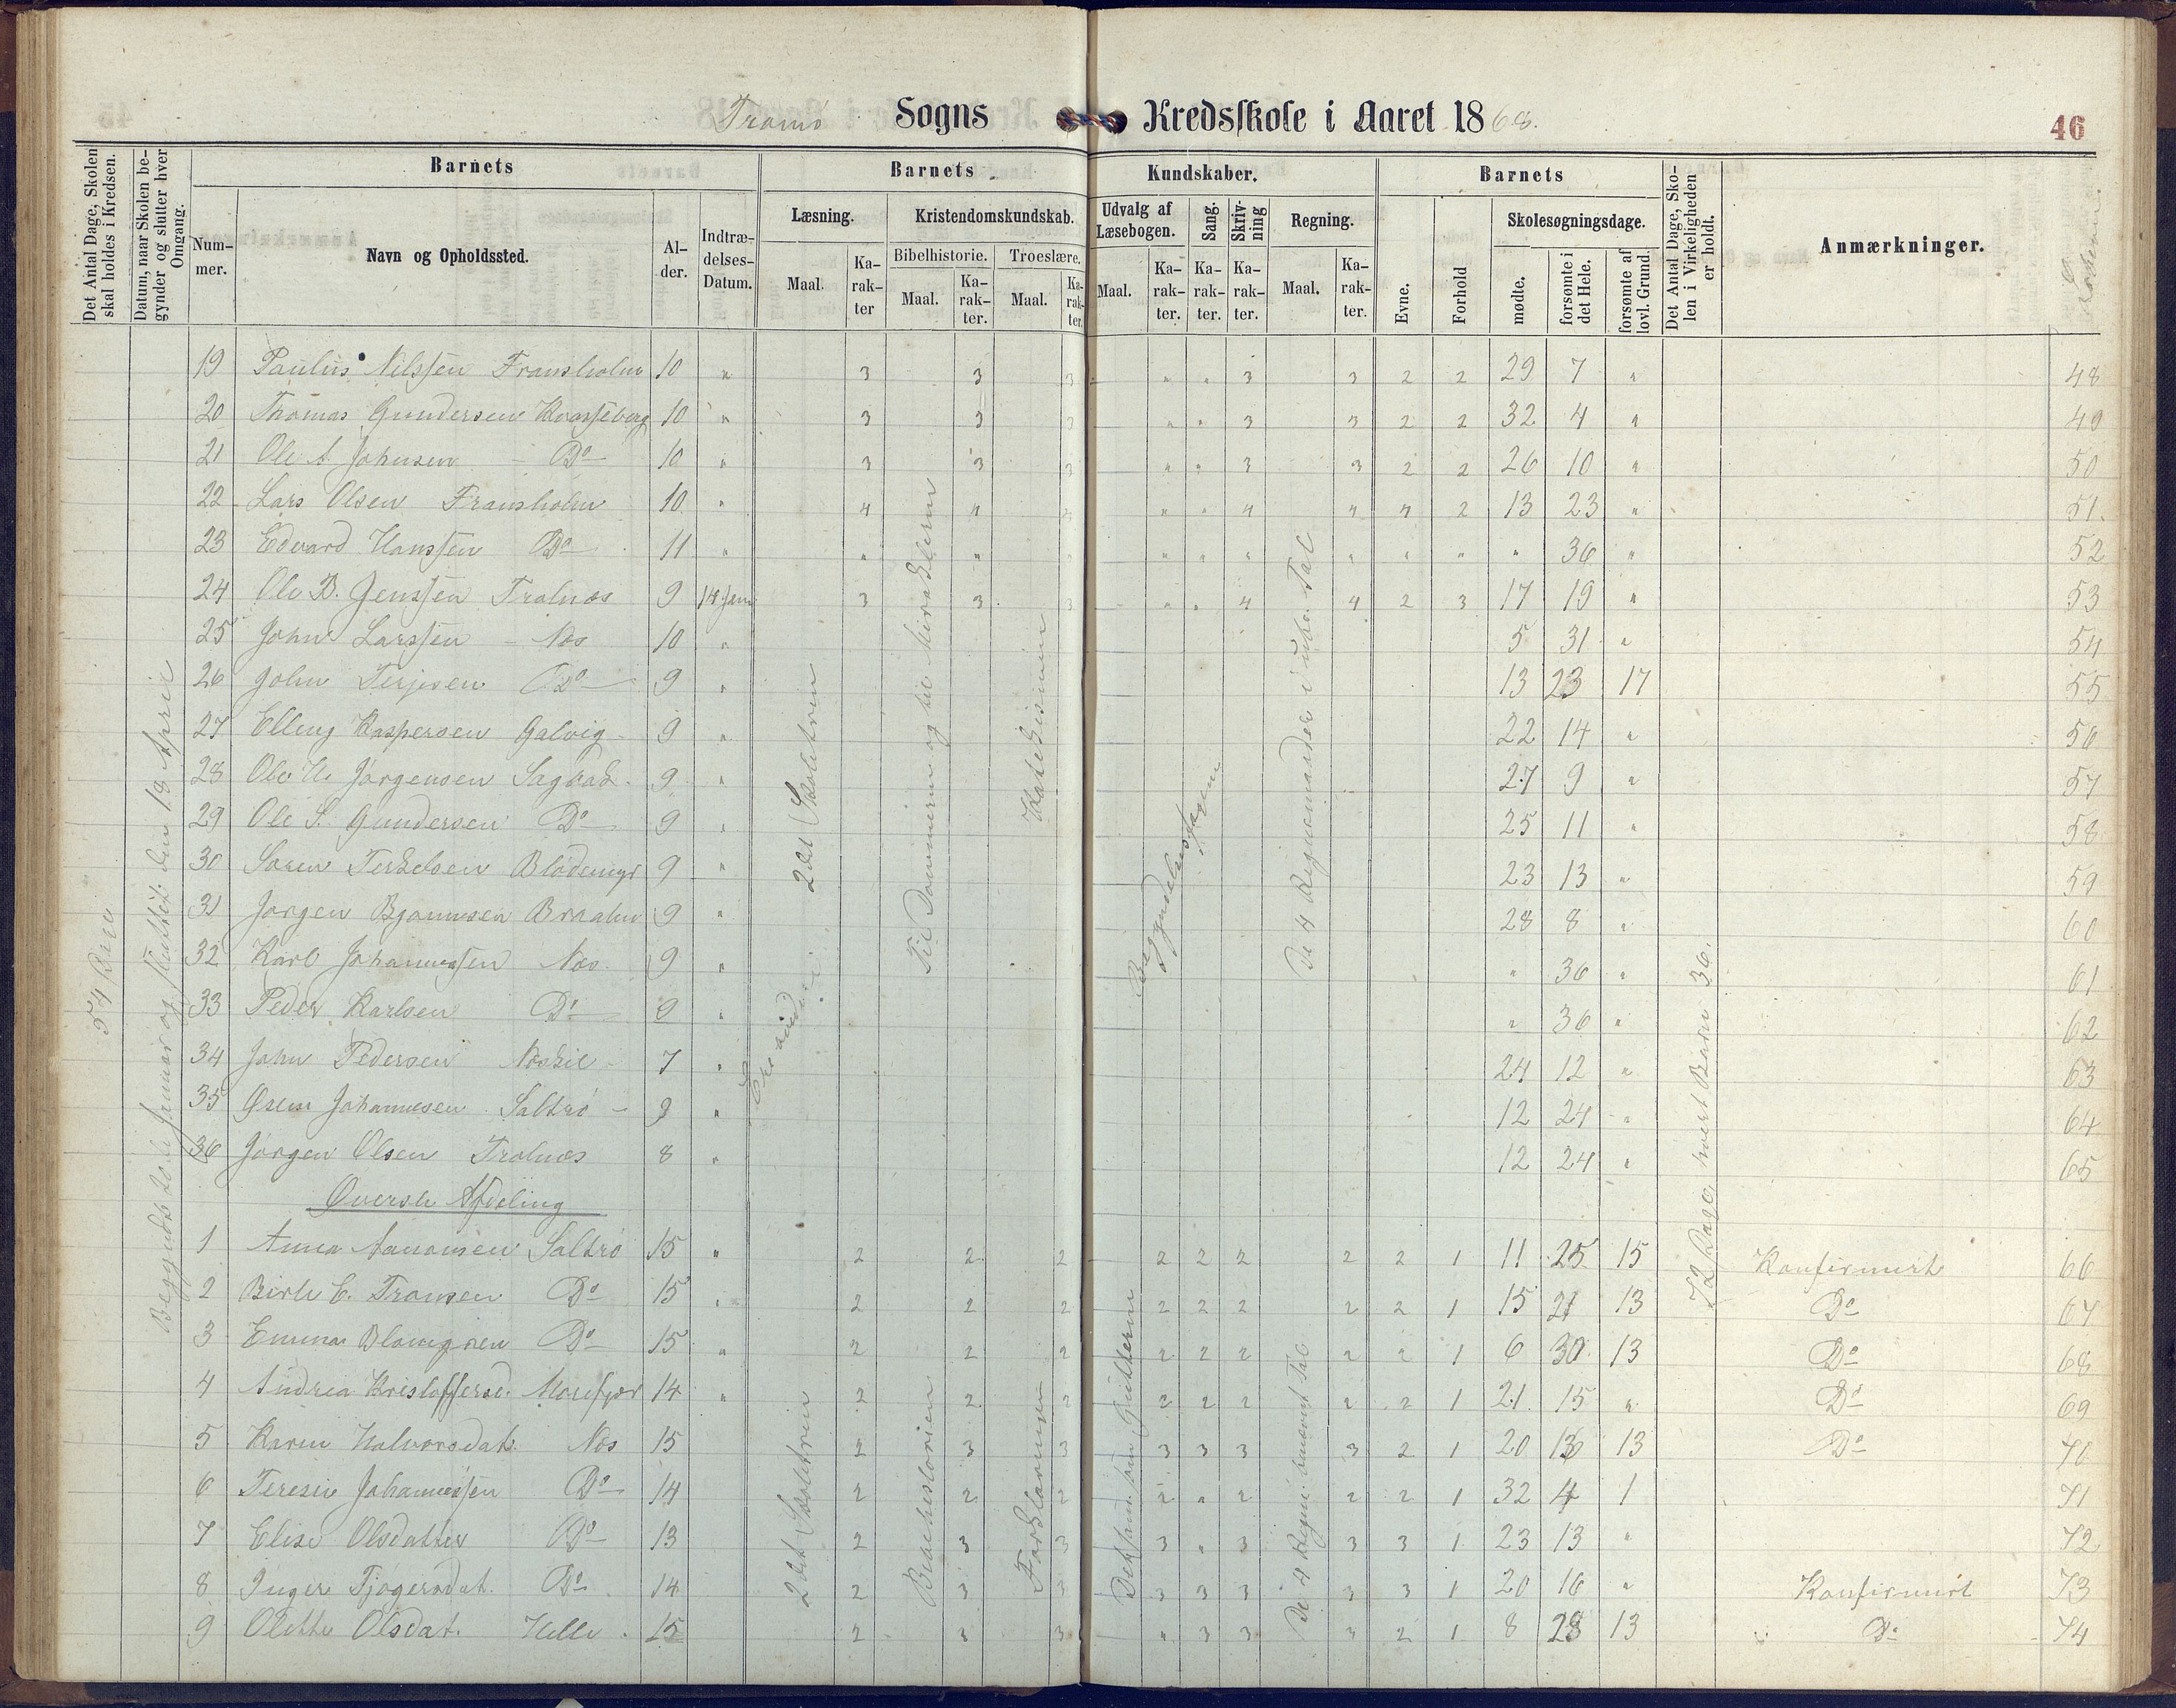 Tromø Sogns Kredsskole i Aaret 1868.
46
Det Antal Dage, Skolen skal holdes i Kredsen.
Datum, naar Skolen begynder og slutter hver Omgang.
Barnets
Barnets
Kundskaber.
Barnets
Det Antal Dage, Skolen i Virkeligheden er holdt.
Anmærkninger.
Nummer.
Navn og Opholdssted.
Alder.
Indtrædelses-Datum.
Læsning.
Kristendomskundskab.
Udvalg af Læsebogen.
Sang.
Skrivning
Regning.
Evne.
Forhold
Skolesøgningsdage.
Bibelhistorie.
Troeslære.
Maal.
Karakter
Maal.
Karakter.
Maal.
Karakter.
Maal.
Karakter.
Karakter.
Karakter.
Maal.
Karakter.
mødte.
forsømte i det Hele.
forsømte af lovl. Grund.
54 Dage
Begyndt 20de Januar og sluttet den 18 April
2det Skoletrin
Til Dommerne og til Miraklerne
Katekismen
Begyndelsesfagene
De 4 Regnemaader i ube. Tal
72 Dage, hvert Barn 36.
19 Paulus Nilssen Fransholm 10 " 3 3 3 " " 3 3 2 2 29 7 " 48
20 Thomas Gundersen Kvasseberg 10 " 3 3 3 " " 3 3 2 2 32 4 " 49
21 Ole A. Johnsen – Do 10 " 3 3 3 " " 3 3 2 2 26 10 " 50
22 Lars Olsen Fransholm 10 " 4 4 4 " " 4 4 4 2 13 23 " 51.
23 Edvard Hanssen Do 11 " " " " " " " " " " " 36 " 52
24 Ole B. Jenssen Tralnæs 9 14 Jan 3 3 3 " " 4 4 2 3 17 19 " 53
25 John Larssen – Næs 10 " 5 31 " 54
26 John Terjesen Do 9 " 13 23 17 55
27 Elling Kaspersen Galvig 9 " 22 14 " 56
28 Ole H. Jørgensen Sagbak. 9 " 27 9 " 57
29 Ole S. Gundersen Do 9 " 25 11 " 58
30 Søren Terkelsen Blødemyr 9 " 23 13 " 59
31 Jørgen Bjønnsen Braalm 9 " 28 8 " 60
32 Karl Johannessen Næs. 9 " " 36 " 61
33 Peder Karlsen Do 9 " " 36 " 62
34 John Pedersen Næskil 7 " 24 12 " 63
35 Johannesen Saltrø – 9 " 12 24 " 64
36 Jørgen Olsen Tralnæs 8 " 12 24 " 65
Øverste Afdeling
2det Skoletrin
Bibelhistorien
Forklaringen
Det samme som Gutterne
De 4 Regn. benævnt Tal
1 Anna Aanonsen Saltrø 15 " 2 2 2 2 2 2 2 2 1 11 25 15 Konfirmirt 66
2 Birte C. Tronsen Do 15 " 2 2 2 2 2 2 2 2 1 15 21 13 Do 67
3 Emma Blomgren Do 15 " 2 2 2 2 2 2 2 2 1 6 30 13 Do 68
4 Andrea Kristoffersd. Morefjær 14 " 2 2 2 2 2 2 2 2 1 21 15 " Do 69
5 Karen Halvorsdat. Næs 15 2 3 3 3 3 3 3 2 1 20 16 13 Do 70
6 Teresie Johannessen Do 14 2 2 2 2 " 2 2 2 1 32 4 1 71
7 Elise Olsdatter Do 13 2 3 3 3 " 3 3 3 1 23 13 " 72
8 Inger Tjøgersdat. Do 14 2 3 3 3 3 3 3 3 1 20 16 " Konfirmirt 73
9 Olette Olsdat. Helle 15 2 2 3 " 3 3 3 2 1 8 28 13 Do 74